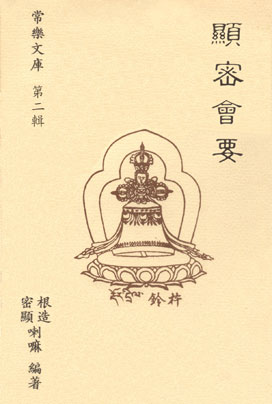 顯密會要
常樂文庫 第二輯
鈴杵
根造
密顯 喇嘛 編著